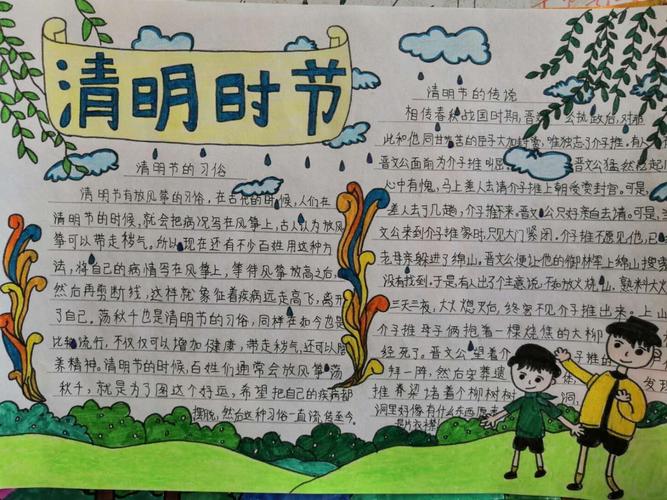 清明时节
清明节的习俗
清明节有放风筝的习俗，在古代的时候，人们在
清明节的时候，就会把病况写在风筝上，古人认为放风
筝可以带走秽气。所以现在还有不少百姓用这种方
法，将自己的病情写在风筝上，等待风筝放高之后，
然后再剪断线，这样就象征着疾病远走高飞，离开
了自己。荡秋千也是清明节的习俗，同样在如今也是
比较流行，不仅仅可以增加健康，带走秽气，还可以培
养精神。清明节的时候，百姓们通常会放风筝荡
秋千，就是为了图这个好运，希望把自己的疾病都
摆脱，然后这种习俗一直流传至今。
清明节的传说
相传春秋战国时期，晋文公执政后，对那
些和他同甘共苦的臣子大加封赏，唯独忘了介子推。有人
晋文公面前为介子推叫屈。晋文公猛然忆起
心中有愧，马上差人去请介子推上朝受赏封官。可是，
差人去了几趟，介子推不来。晋文公只好亲自去请。可
文公来到介子推家时，只见大门紧闭。介子推不愿见他，
老母亲躲进了绵山，晋文公便让他的御林军上绵山搜
没有找到。于是，有人出了个主意说，不如放火烧山，
三天三夜，大火熄灭后，终究不见介子推出来。上山
介子推母子俩抱着一棵烧焦的大柳
经死了。晋文公望着介子推的
拜一阵，然后安葬遗
推脊梁堵着个柳树树
洞里好像有什么东西